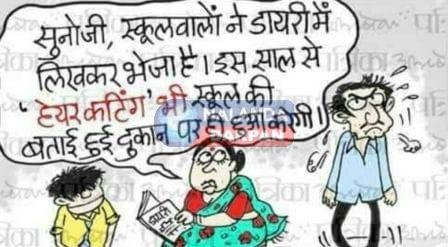 सुनोजी, स्कूलवालों ने डायरी में
लिखकर भेजा है। इस साल से
'हेयर कटिंग' भी स्कूल की
बताई हुई दुकान पर ही हुआ करेगी।